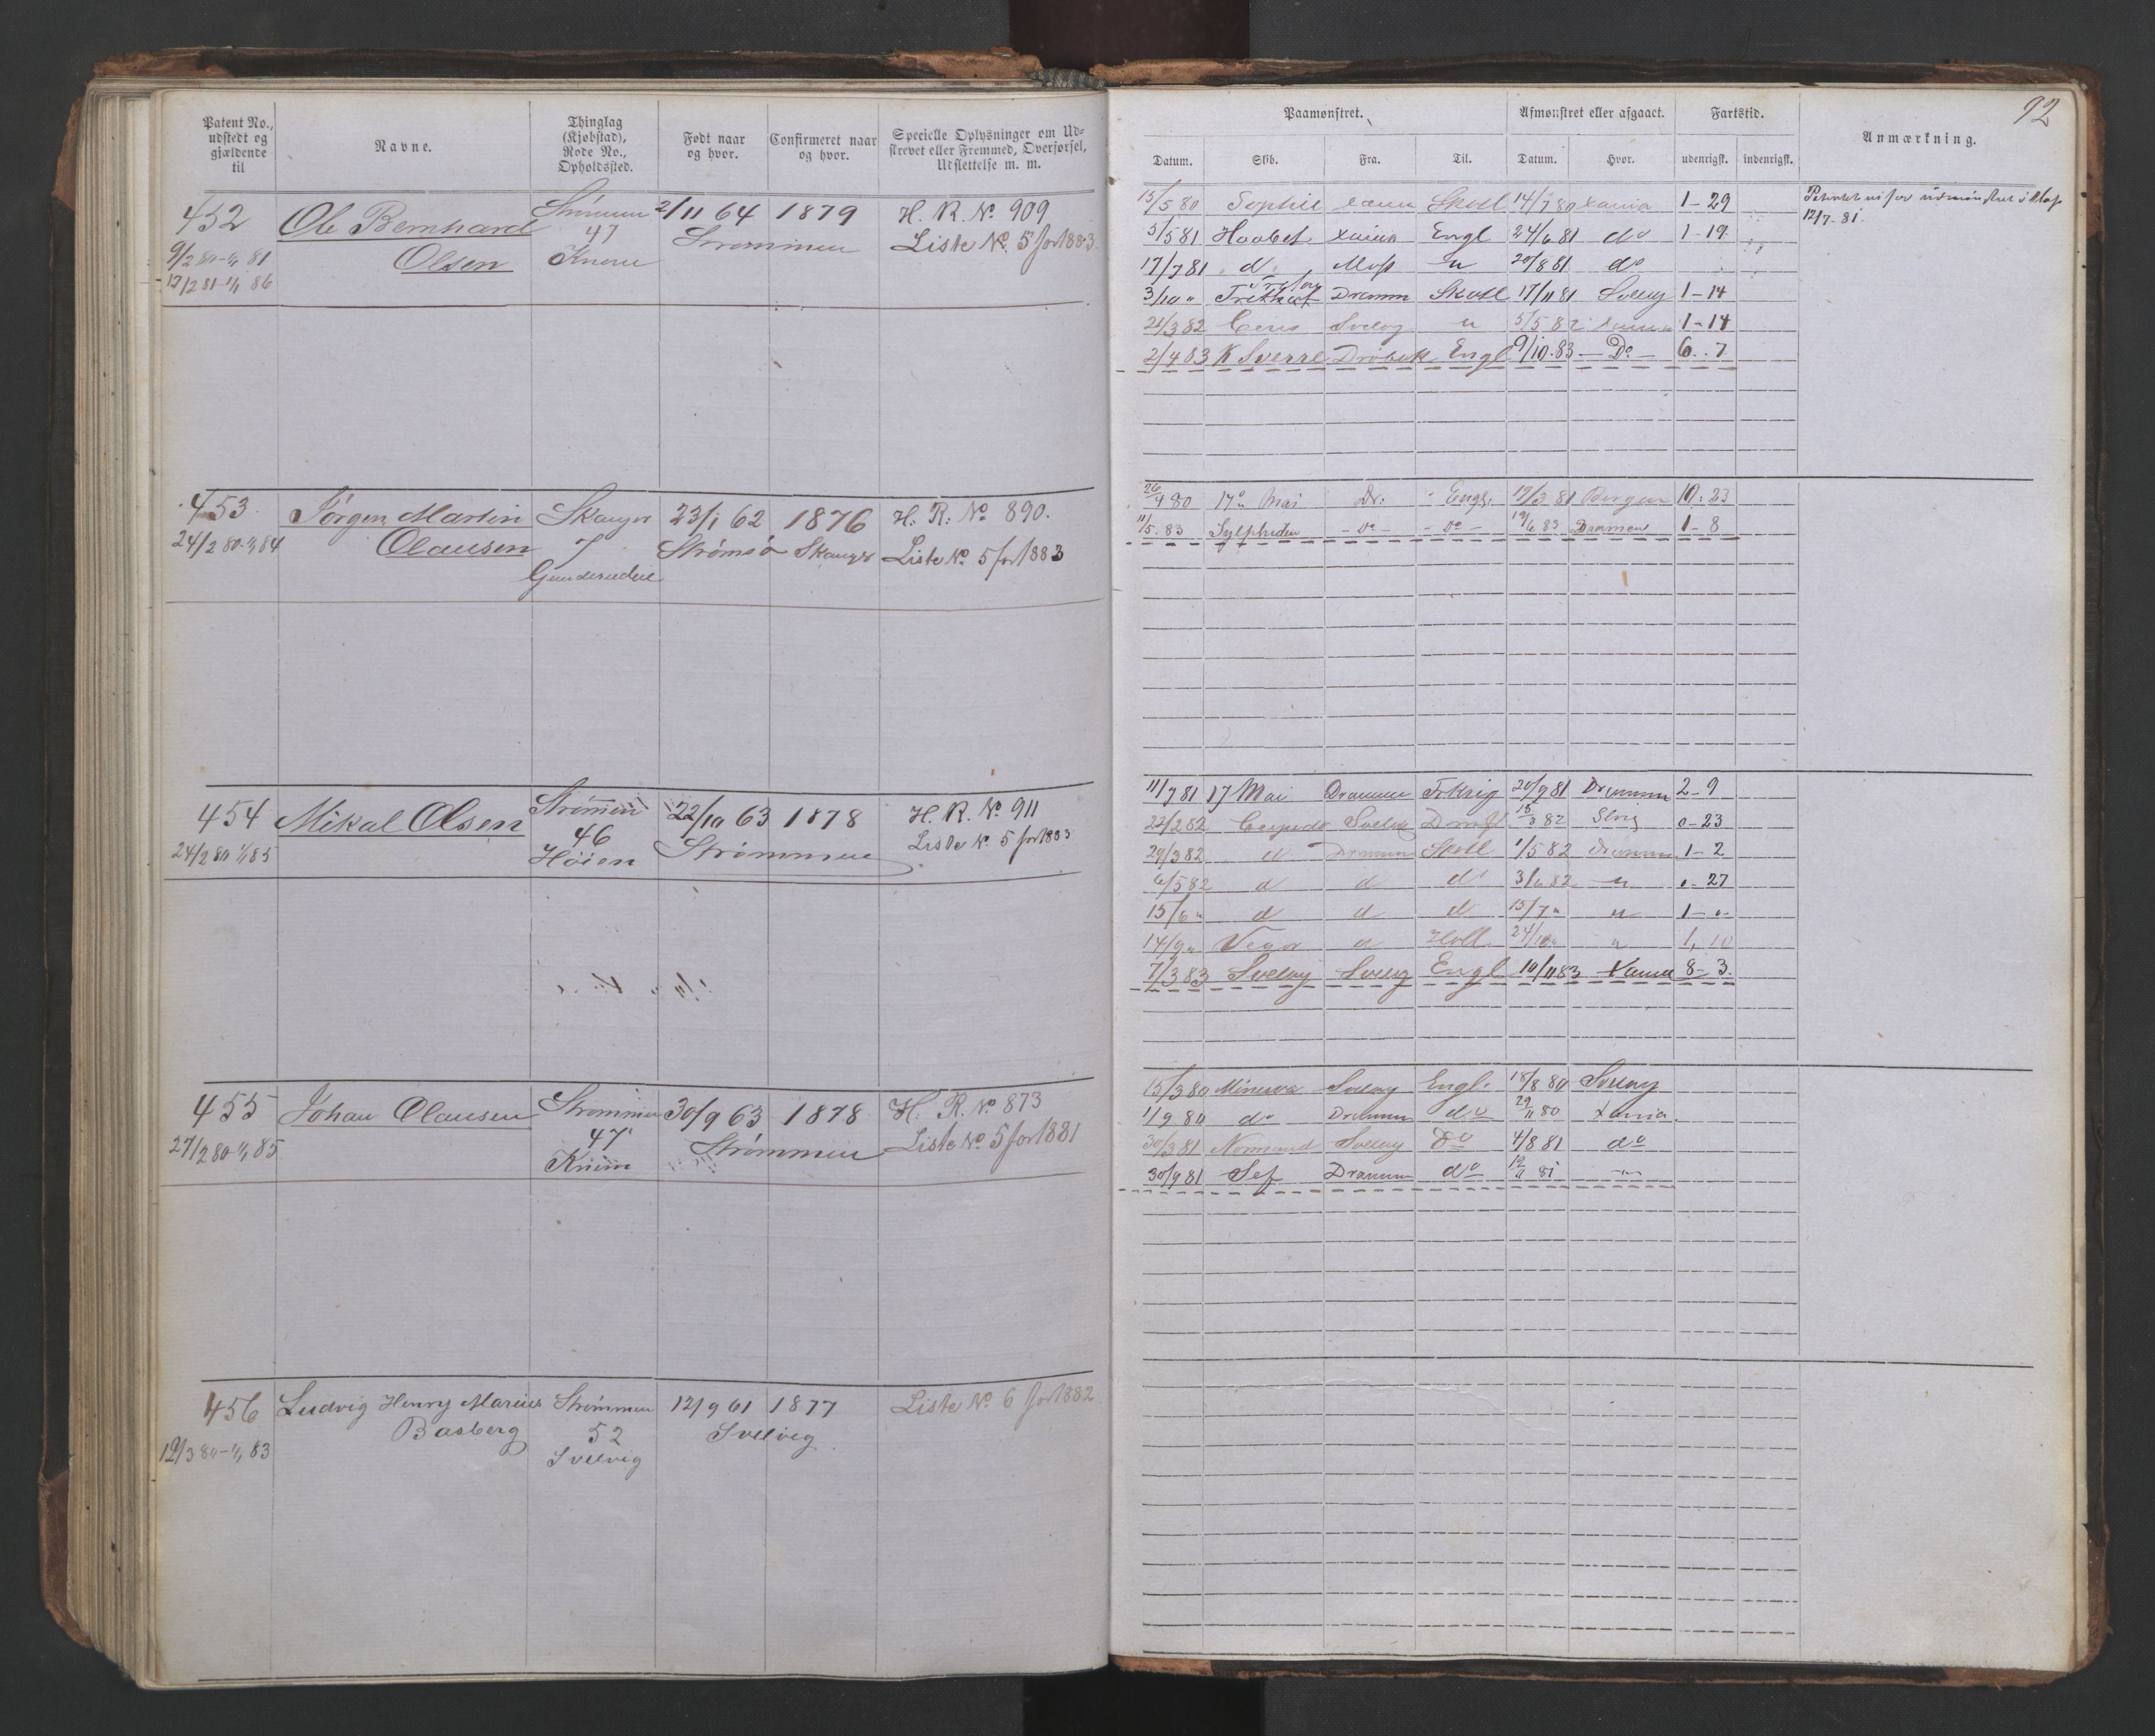 92
Patent No., udstedt og gjældende til
Navne.
Thinglag (Kjøbstad), Rode No., Opholdssted.
Født naar og hvor.
Confirmeret naar og hvor.
Specielle Oplysninger om Udskrevet eller Fremmed, Overførsel, Udslettelse m. m.
Paamønstret.
Afmønstret eller afgaaet.
Fartstid.
Anmærkning.
Datum. Skib. Fra. Til. Datum. Hvor. udenrigsk. indenrigsk.
452 Ole Bernhard Strømm 2/11 64 1879 H. R. No 909
47 Strømmen Liste No 5 for 1883.
9/2 80-1/1 81 Olsen
17/12 81-1/1 86
15/5 80 Sophie Skotl 14/7 80 Xania 1-29
5/5 81 Haabet Xania Engl 24/6 81 do 1-19
17/7 81 d Moss " 20/8 81 do
3/10 " Dramm Skotl 17/11 81 Svelvig 1-14
21/3 82 Ceres Svelvig " 5/5 82 Xania 1-14
2/4 83 K Sverre Drøbak Engl 9/10.83 - Do - 6..7
12/7-81
453 Jørgen Martin Skauger 23/1 62 1876 H. R. No 890.
24/2 80-1/1 84 Olausen 7 Strømsø Skauger Liste No 5 for 1883
26/4 80 17de Mai Dr. Engl. 19/3 81 Bergen 10-23
11/5.83 Sylphiden - Do - - Do - 19/6 83 Dramen 1-8
454 Mikal Olsen Strømmen 22/10 63 1878 H. R. No 911
24/2 80 1/1 85 46 Strømmen Liste No 5 for 1883
Høien
11/7 81 17 Mai Dramm 20/9 81 Drammen 2-9
22/2 82 Svelvig 15/3 82 0-23
29/3 82 d Drammen Skotl 1/5 82 Drammen 1-2
6/5 82 d d do 3/6 82 " 0-27
15/6 " d d d 15/7 " " 1-0-
14/9 " Vega " Holl. 24/10 " " 1, 10
7/3 83 Svelvig Svelvig Engl 10/11 83 Xania 8-3.
455 Johan Olausen Strømmen 30/9 63 1878 H. R. No 873
27/2 80-1/1 85 47 Strømmen Liste No 5 for 1881
15/3 80 Minerva Svelvig Engl. 18/8 80 Svelvig
1/9 80 do Drammen do 29/11 80 Xania.
30/3 81 Normand Svelvig Do 4/8 81 do
30/9 81 Sef Drammen do 12/11 81 - " -
456 Ludvig Henry Marius Strømmen 12/9 61 1877 Liste No 6 for 1882.
Basberg 52 Svelvig
12/3 80-1/1 83 Svelvig